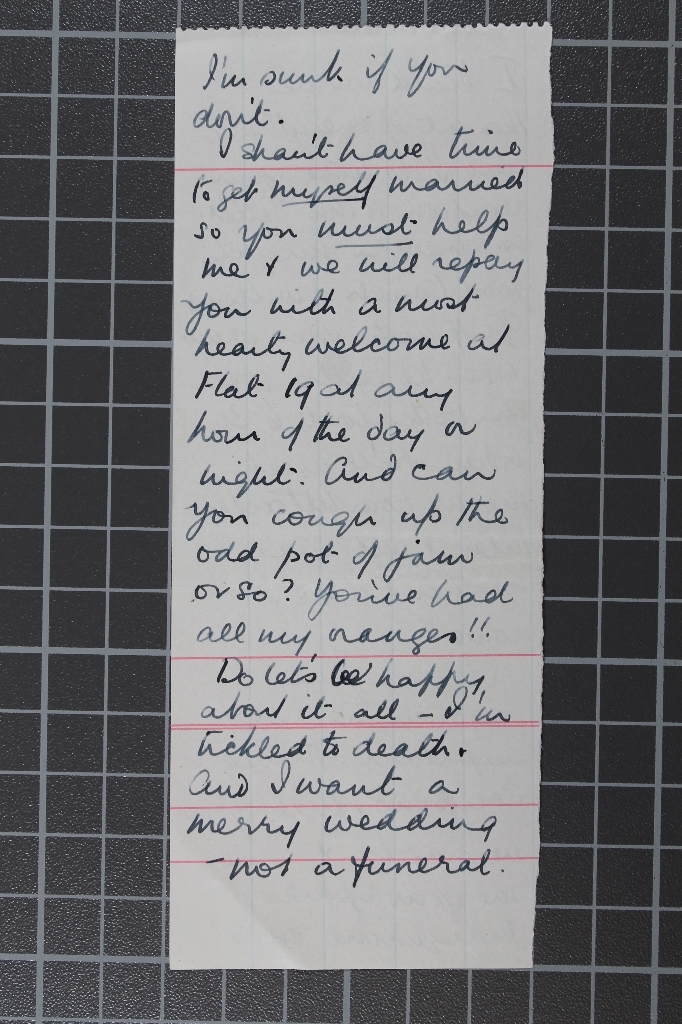 I'm sunk if you
don't.
I shan't have time
to get myself married
so you must help
me & we will repay
you with a most
hearty welcome at
Flat 19 at any
hour of the day or
night. And can
you cough up the
odd pot of jam
or so? You've had
all my oranges!!
Do let's be happy
about it all – I'm
tickled to death.
And I want a
merry wedding
– not a funeral.